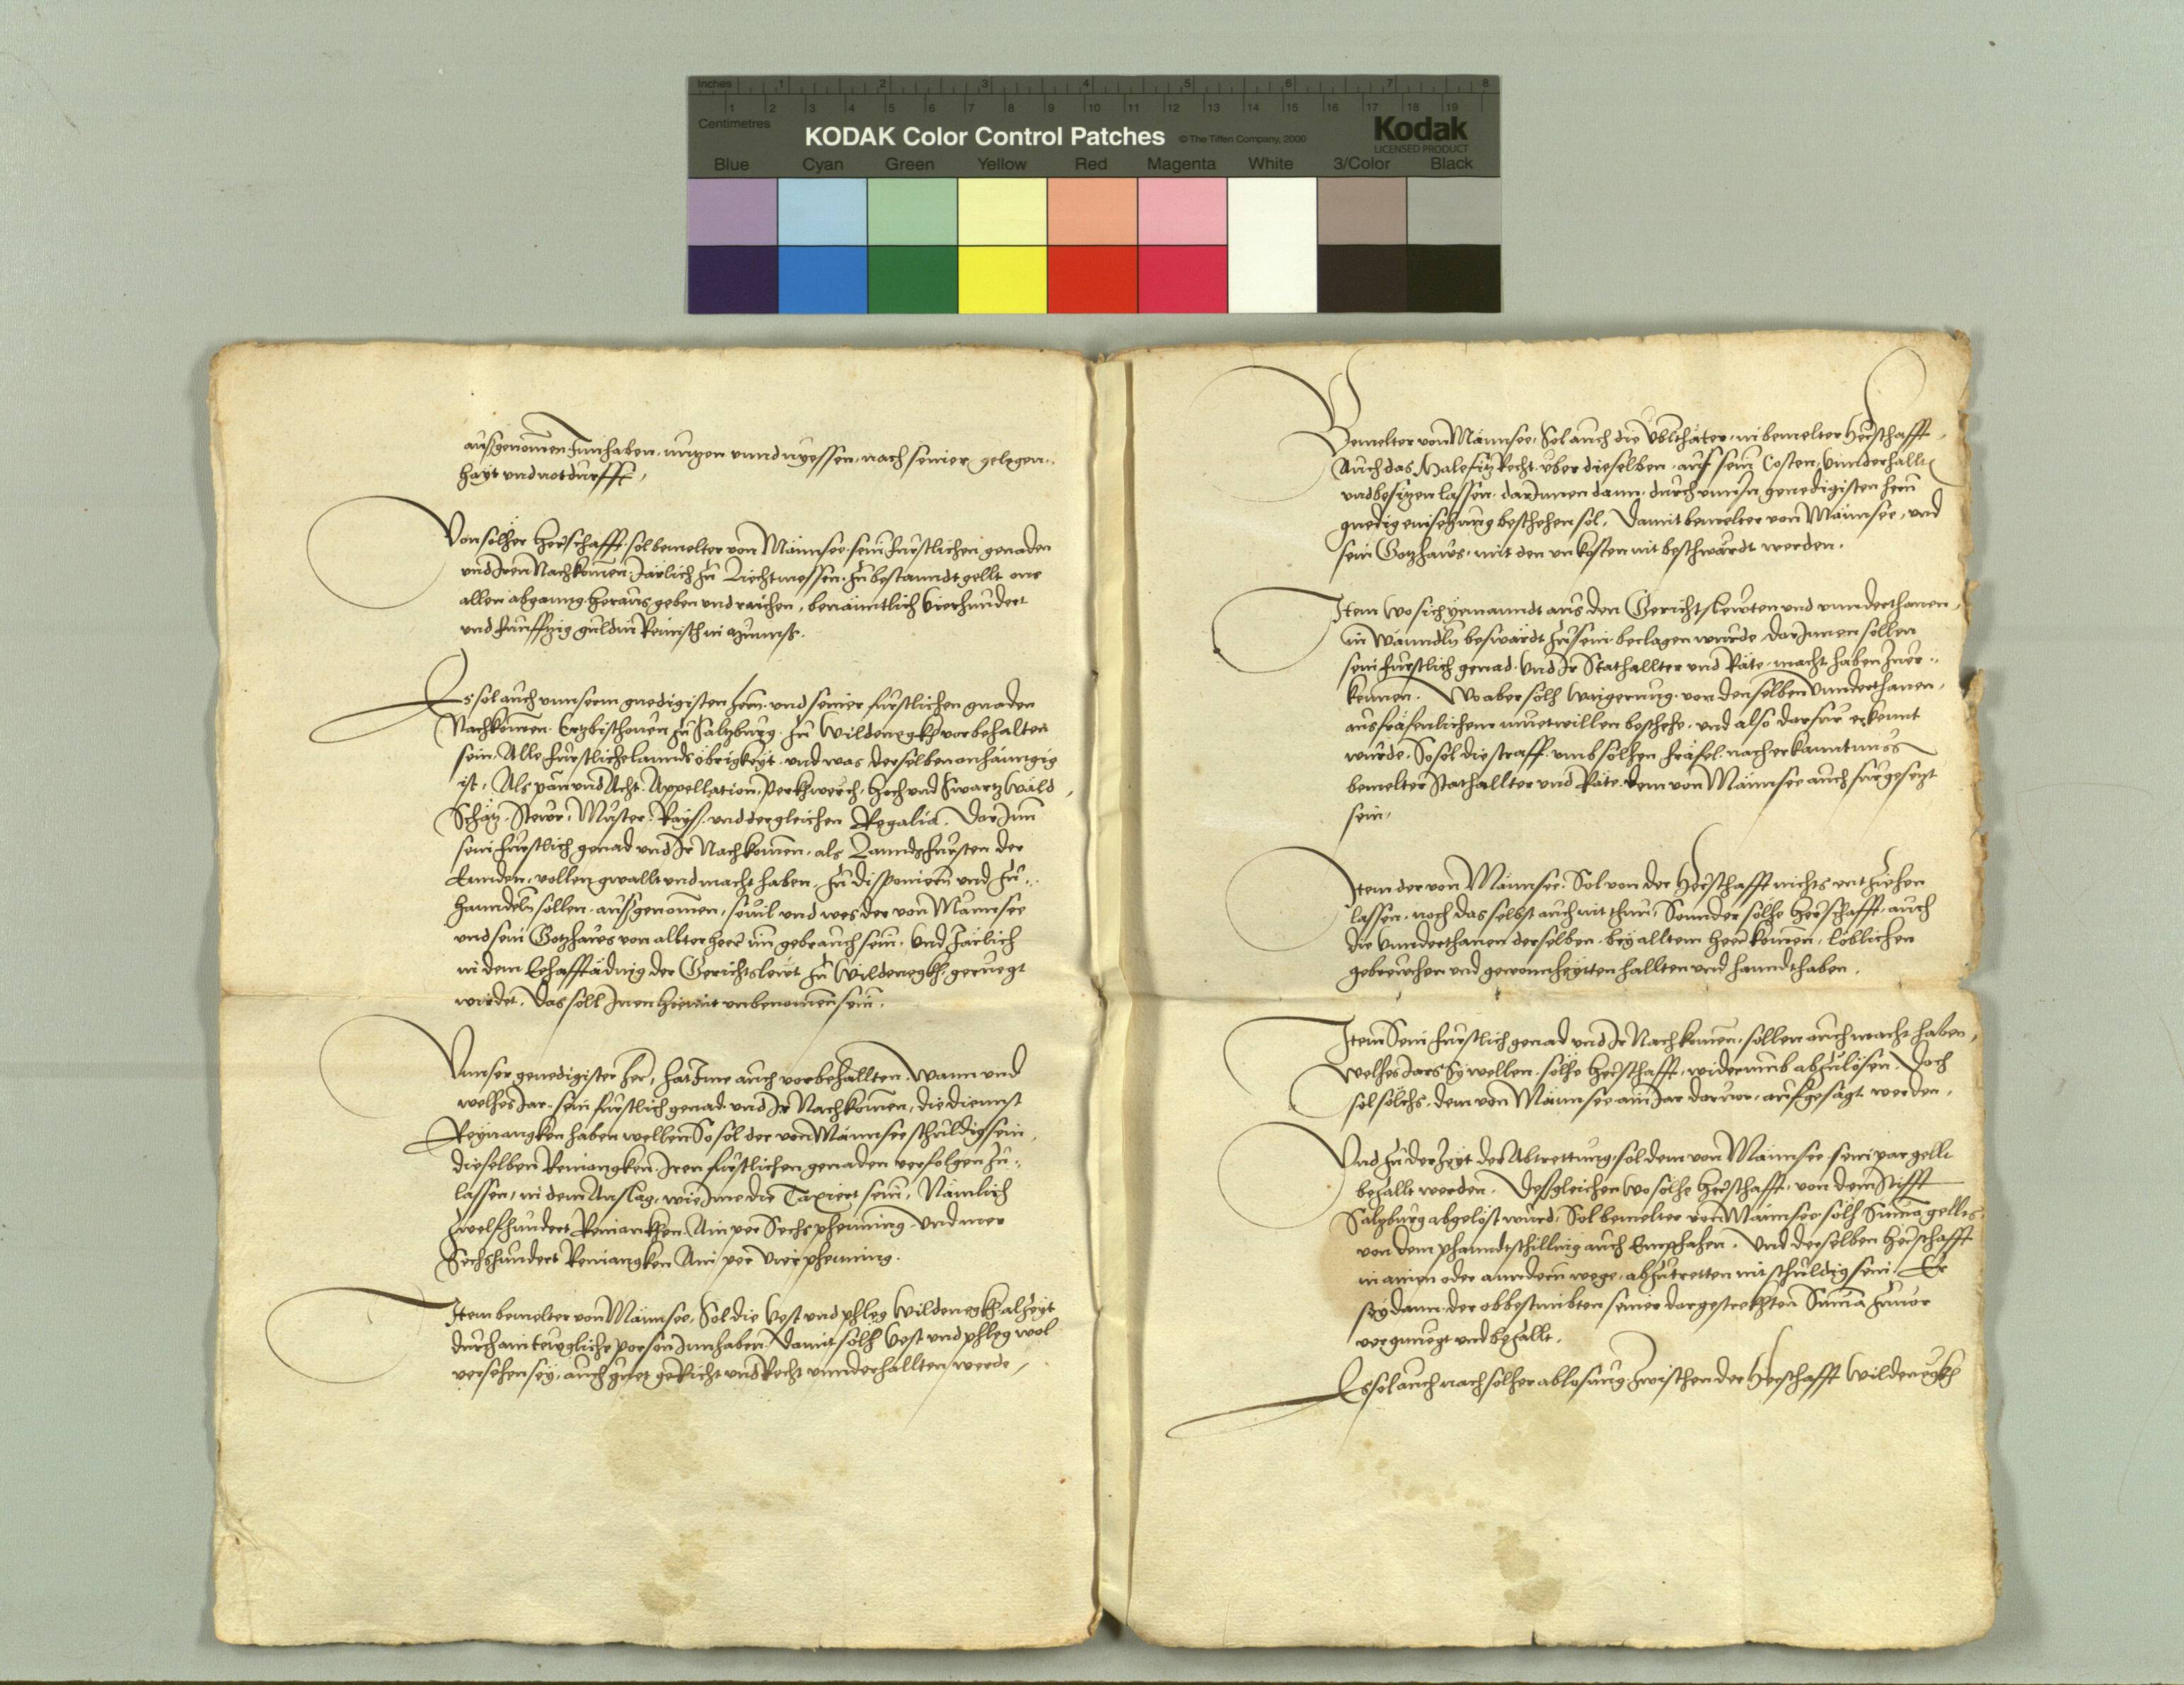 Inches 1 2 3 4 5 6 7 8
1 2 3 4 5 6 7 8 9 10 11 12 13 14 15 16 17 18 19
Centimetres
KODAK Color Control Patches © The Tiffen Company, 2000 Kodak
LICENSED PRODUCT
Blue Cyan Green Yellow Red Magenta White 3/Color Black
ausgenomen Innhaben, nutzen unnd nyessen, nach seiner gelegen-
hayt und notdurfft,
Von sölher Herschafft sol bemelter von Männsee, sein fürstlichen genaden
und Iren Nachkomen, Järlich zu Liechtmessen, zu bestanndt gellt one
allen abganng, heraus geben und raichen, benänntlich Vierhundert
und funffzig guldin Reinisch in münns.
Es sol auch unnserm gnedigisten herrn und seiner fürstlichen gnaden
Nachkomen Ertzbischouen zu Saltzburg zu Wildenegkh vorbehalten
sein, Alle fürstliche lannds öbrigkeyt, und was derselben anhänngig
ist, Als pan und Acht, Appellation, Perkhwerch, Hoch und Swartzwäld,
Schätz, Stewr, Muster, Rayss, und dergleichen Regalia. Dar Inn
sein fürstlich genad und Ir Nachkomen, als Lanndsfürsten der
Ennden, vollen gwallt und macht haben, zu disponiern und zu
hanndeln sollen, aussgenomen, souil und wes der von Männsee
und sein Gotzhaws von allter herr im gebrauch sein, Und Järlich
in dem Eehafftäding der Gerichtslewt zu Wildenegkh, geruegt
wirdet, Das soll Inen hiemit unbenomen sein.
Unnser genedigister her, hat Ime auch vorbehallten, Wann und
welhes Jar, sein fürstlich genad und Ir Nachkomen, die diennst
Reynangken haben wellen, So sol der von Männsee schuldig sein,
dieselben Reinangken, Iren fürstlichen genaden verfolgen zu
lassen, in dem Anslag, wie Ime die Taxiert sein, Nämlich
Zwelfhundert Reinankhen, Ain per Sechs phenning, Und mer
Sechshundert Reinangken Ain per Vier phenning.
Item bemelter von Männsee, Sol die Vest und phleg Wildenegkh alzeyt
durch ain teugliche person Innhaben, Damit sölh Vest und phleg wol
versehen sey, auch guet gericht und Recht unnderhallten werde,
Bemelter von Männsee, Sol auch die Übltäter, in bemelter Herschafft,
Auch das Malefitz Recht, über dieselben, auf sein Costen, Unnderhallten
und besitzen lassen, darinnen dann, durch unnsern genedigisten herrn
gnedig einsehung beschehen sol, Damit bemelter von Männsee, und
sein Gotzhaws, mit den unkosten nit beschwärdt werden.
Item Wo sich yemanndt aus den Gerichtslewten und unnderthanen,
in Wänndln beswärdt zu sein, beclagen wurde, Dar Innen sollen
sein fürstlich genad, Und Ir Stathallter und Räte, macht haben zuer-
kennen. Wo aber sölh Waigerung, von denselben Unnderthanen,
aus fräfenlichem muetwillen beschehe, und also darfür erkennt
wurde, So sol die straff, umb sölhen fräfel, nach erkanntnuss
bemelter Stathallter und Räte, dem von Männsee auch fürgesetzt
sein,
Item der von Männsee, Sol von der Herschafft nichts entziehen
lassen, noch das selbst auch nit thun, Sonnder sölhe Herschafft, auch
die Unnderthanen derselben, bey alltem Herkomen, loblichen
gebreuchen und gewonnheytten hallten und hanndthaben.
Item Sein fürstlich genad und Ir Nachkomen, sollen auch macht haben,
Welhes Jars Sy wellen, sölhe Herschafft, widerumb abzulösen, Doch
sol sölchs, dem von Männsee ain Jar darvor, aufgesagt werden,
Und zu der Zeyt der Abtrettung, sol dem von Männsee, sein par gellt
bezallt werden. Desgleichen Wo sölhe Herschafft, von dem Stifft
Saltzburg abgelöst würd, Sol bemelter von Männsee, sölh Suma gelltes,
von dem phanndtschilling auch Emphahen, Und derselben Herschafft
in ainen oder anndern wege, abzutretten nit schuldig sein, Er
sey dann, der obbestimbten seiner dargestrekhten Suma zuuor
vergnuegt und bezallt.
Es sol auch nach sölher ablosung, Zwischen der Herschafft Wildenegkh